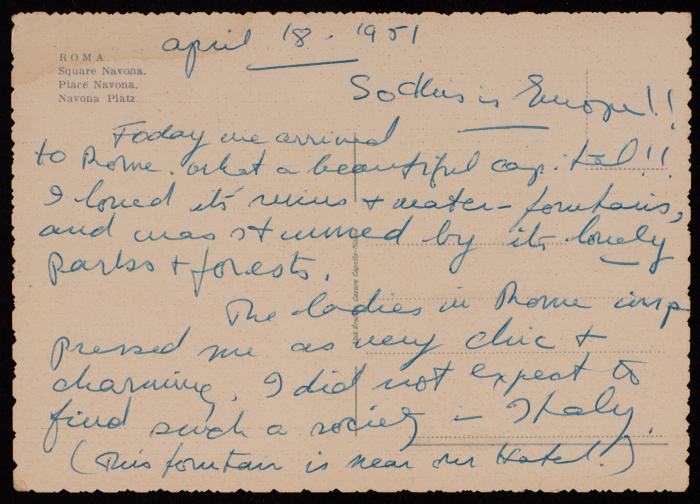 april 18 - 1951
ROMA
Square Navona.
Place Navona.
Navona Platz
So this is Europe!!
Today we arrived
to Rome. what a beautiful capital!!
I loved its ruins + water-fountains,
and was stunned by its lovely
parks + forests.
The ladies in Rome imp
pressed me as very chic +
charming. I did not expect to
find such a society in Italy.
(This fountain is near our Hotel.)